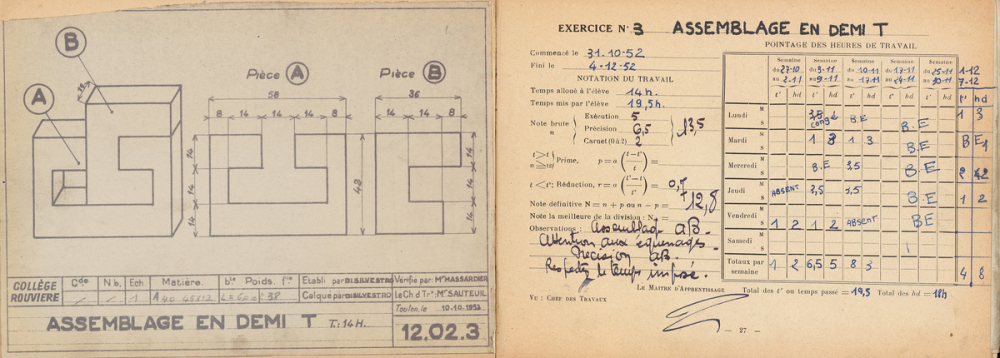 B
A
28
Pièce A
58
8 14 14 14 8
14
14
14
43
Pièce B
36
14 14 8
14
14
14
COLLÈGE
ROUVIERE
Cde N b, Ech Matière. bre Poids. fre
1
Établi par DISILVESTRO
Vérifié par: Mr MASSARDIER
Calque par DISILVESTRO
Le Ch d Trx: Mr SAUTEUIL
Toulon, le 10.10.1952
ASSEMBLAGE EN DEMI T T: 14H.
12.02.3
EXERCICE N° 3 ASSEMBLAGE EN DEMI T
POINTAGE DES HEURES DE TRAVAIL
Commencé le 31.10.52
Fini le 4-12.52
NOTATION DU TRAVAIL
Temps alloué à l'élève 14h.
Temps mis par l'élève 19,5h.
Note brute n
Exécution 5
Précision 6,5
Carnet (0 à 2) 2
13,5
Prime, p = a
t < t': Réduction, r = a = 0,7
Note définitive N = n + p ou n – p = 12,8
Note la meilleure de la division: N
Observations: Assemblage AB.
Attention aux équerrages.
Précision AB.
Respectez le temps imposé.
LE MAITRE D'APPRENTISSAGE
VU: CHEF DES TRAVAUX
Semaine Semaine Semaine Semaine Semaine
du 27-10 du 3-11 du 10-11 du 17-11 du 25-11 1-12
au 2-11 au 9-11 au 17-11 au 24-11 au 30-11 7-12
t' hd t' hd t' hd t' hd t' hd t' hd
Lundi M S congé B.E B.E 1 3
Mardi M S 1 3 1 3 B.E BE 1
Mercredi M S B.E 3,5 B.E 2
Jeudi M S ABSENT 3,5 3,5 B.E 1 2
Vendredi M S 1 2 1 2 ABSENT BE
Samedi M S
Totaux par semaine 1 2 6,5 5 8 3 4 8
Total des t' ou temps passé = 19,5 Total des hd = 18h
— 27 —